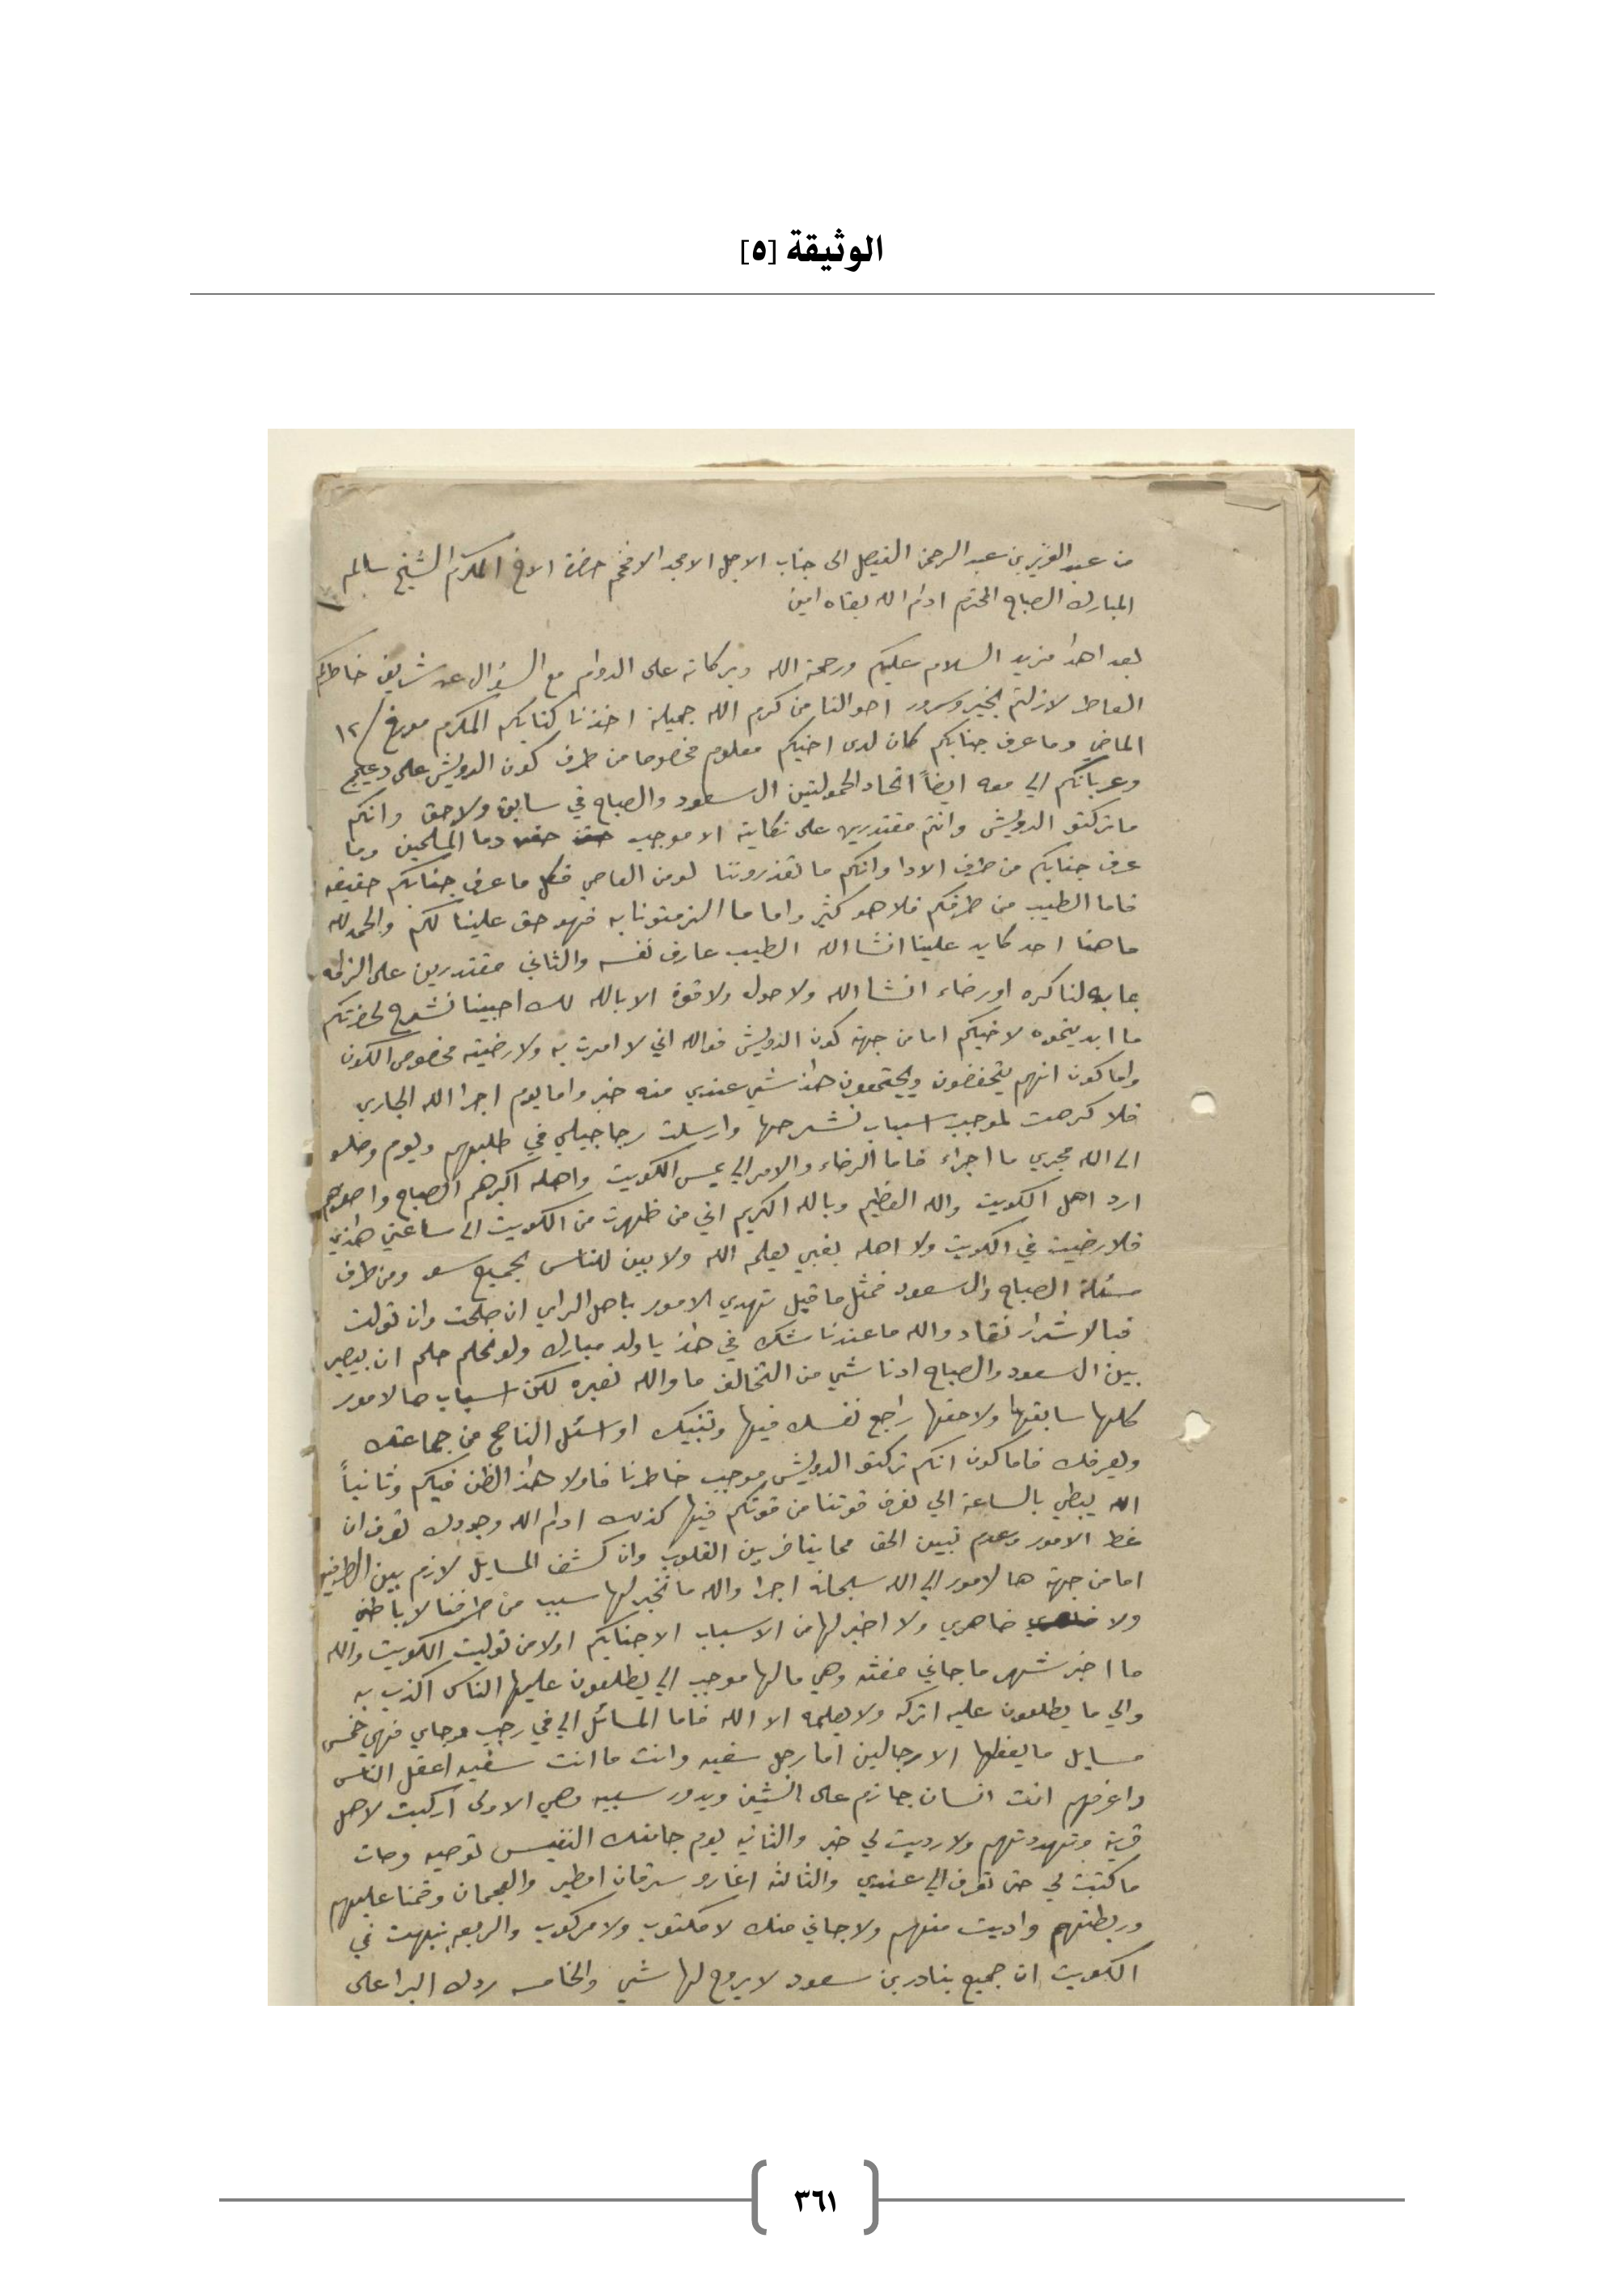 الوثيقة [٥]
من عبد العزيز بن عبد الرحمن الفيصل الى جناب الاجل الامجد الافخم حضرة الاخ المكرم الشيخ سالم
المبارك الصباح المحترم ادام الله بقاه امين
بعد اهدا مزيد السلام عليكم ورحمة الله وبركاته على الدوام مع السؤال عن شريف خاطركم
العاطر لازلتم بخير وسرور احوالنا من كرم الله جميلة اخذنا كتابكم المكرم مورخ /١٢
الماضي وما عرف جنابكم كان لدى اخيكم معلوم مخصوصا من طرف كون الدويش على دعيج
وعربانكم الي معه ايضاً اتحاد الحمولتين ال سعود والصباح في سابق ولاحق وانكم
ماتركتو الدويش وانتم مقتدرين على نكايته الا موجب حقن دما المسلمين وما
عرف جنابكم من طرف الادا وانكم ما تعذرونا لو من العاصي فكل ما عرف جنابكم حقيقه
فاما الطيب من طرفكم فلا هو كثير واما ما الزمتونا به فهو حق علينا لكم والحمد لله
ما هنا احد كايد علينا انشا الله الطيب عارف نفسه والثاني مقتدرين على الزامه
بما به لنا كره او رضاء انشا الله ولا حول ولا قوة الا بالله لك احبينا نشرح لحضرتكم
ما ابديتموه لاخيكم اما من جهة كون الدويش فوالله اني لا امرت به ولا رضيته مخصوص الكون
واما كون انهم يتحفضون ويجتمعون هذا شي عندي منه خبر واما يوم اجرا الله الجاري
فلا كرهت لموجب اسباب نشرحها وارسلت رجاجيلي في طلبهم ويوم وصلو
الى الله مجري ما اجراء فاما الرضاء والامر الي يمس الكويت واهله اكبرهم الصباح واصغرهم
ارد اهل الكويت والله العظيم وبالله الكريم اني من ظهرت من الكويت الى ساعتي هذي
فلا رضيت في الكويت ولا اهله بغبي يعلم الله ولا بين للناس بجميع سو ومن طرف
مسئلة الصباح وال سعود فمثل ما قيل تهدي الامور باهل الراي ان صلحت وان تولت
فبالاشرار تنقاد والله ما عندنا شك في هذا يا ولد مبارك ولو نحلم حلم ان يصير
بين ال سعود والصباح ادنا شي من التخالف ما والله نصبره لكن اسباب هالامور
كلها سابقها ولاحقها راجع نفسك فيها وتنبيك او اسئل الناصح من جماعتك
ويعرفك فاما كون انكم تركتو الدويش موجب خاطرنا فاولا هذا الظن فيكم وثانياً
الله يبطي بالساعة الي نعرف قوتنا من قوتكم فيها كذلك ادام الله وجودك تعرف ان
غط الامور وعدم تبيين الحق مما ينافر بين القلوب وان كشف المسايل لازم بين الطرفين
اما من جهة هالامور الي الله سبحانه اجرا والله ما نخبر لها سبب من طرفنا لا باطني
ولا ضاهري ولا اخبر لها من الاسباب الا جنابكم اولا من توليت الكويت والله
ما اخبر شهر ما جاني منه وهي مالها موجب الي يطلعون عليها الناس اكذب به
والي ما يطلعون عليه اتركه ولا يعلمه الا الله فاما المسائل الي في رجب وجاي فهي خمس
مسايل ما يفعلها الا رجالين اما رجل سفيه وانت ما انت سفيه اعقل الناس
واعرفهم انت انسان جازم على الشين ويدور سببه وهي الاولى اركبت لاهل
قرية وتهددتهم ولا رديت لي خبر والثانيه يوم جاتك النفيس توصيه وجات
ما كتبت لي حتى تعرف الي عندي والثالثه اغارو سرقان امطير والعجمان وقمنا عليهم
وربطتهم واديت منهم ولا جاني منك لا مكتوب ولا مركوب والربعه نبهت في
الكويت ان جميع بنادر بن سعود لا يروح لها شي والخامسه ردك البرا على
٣٦١